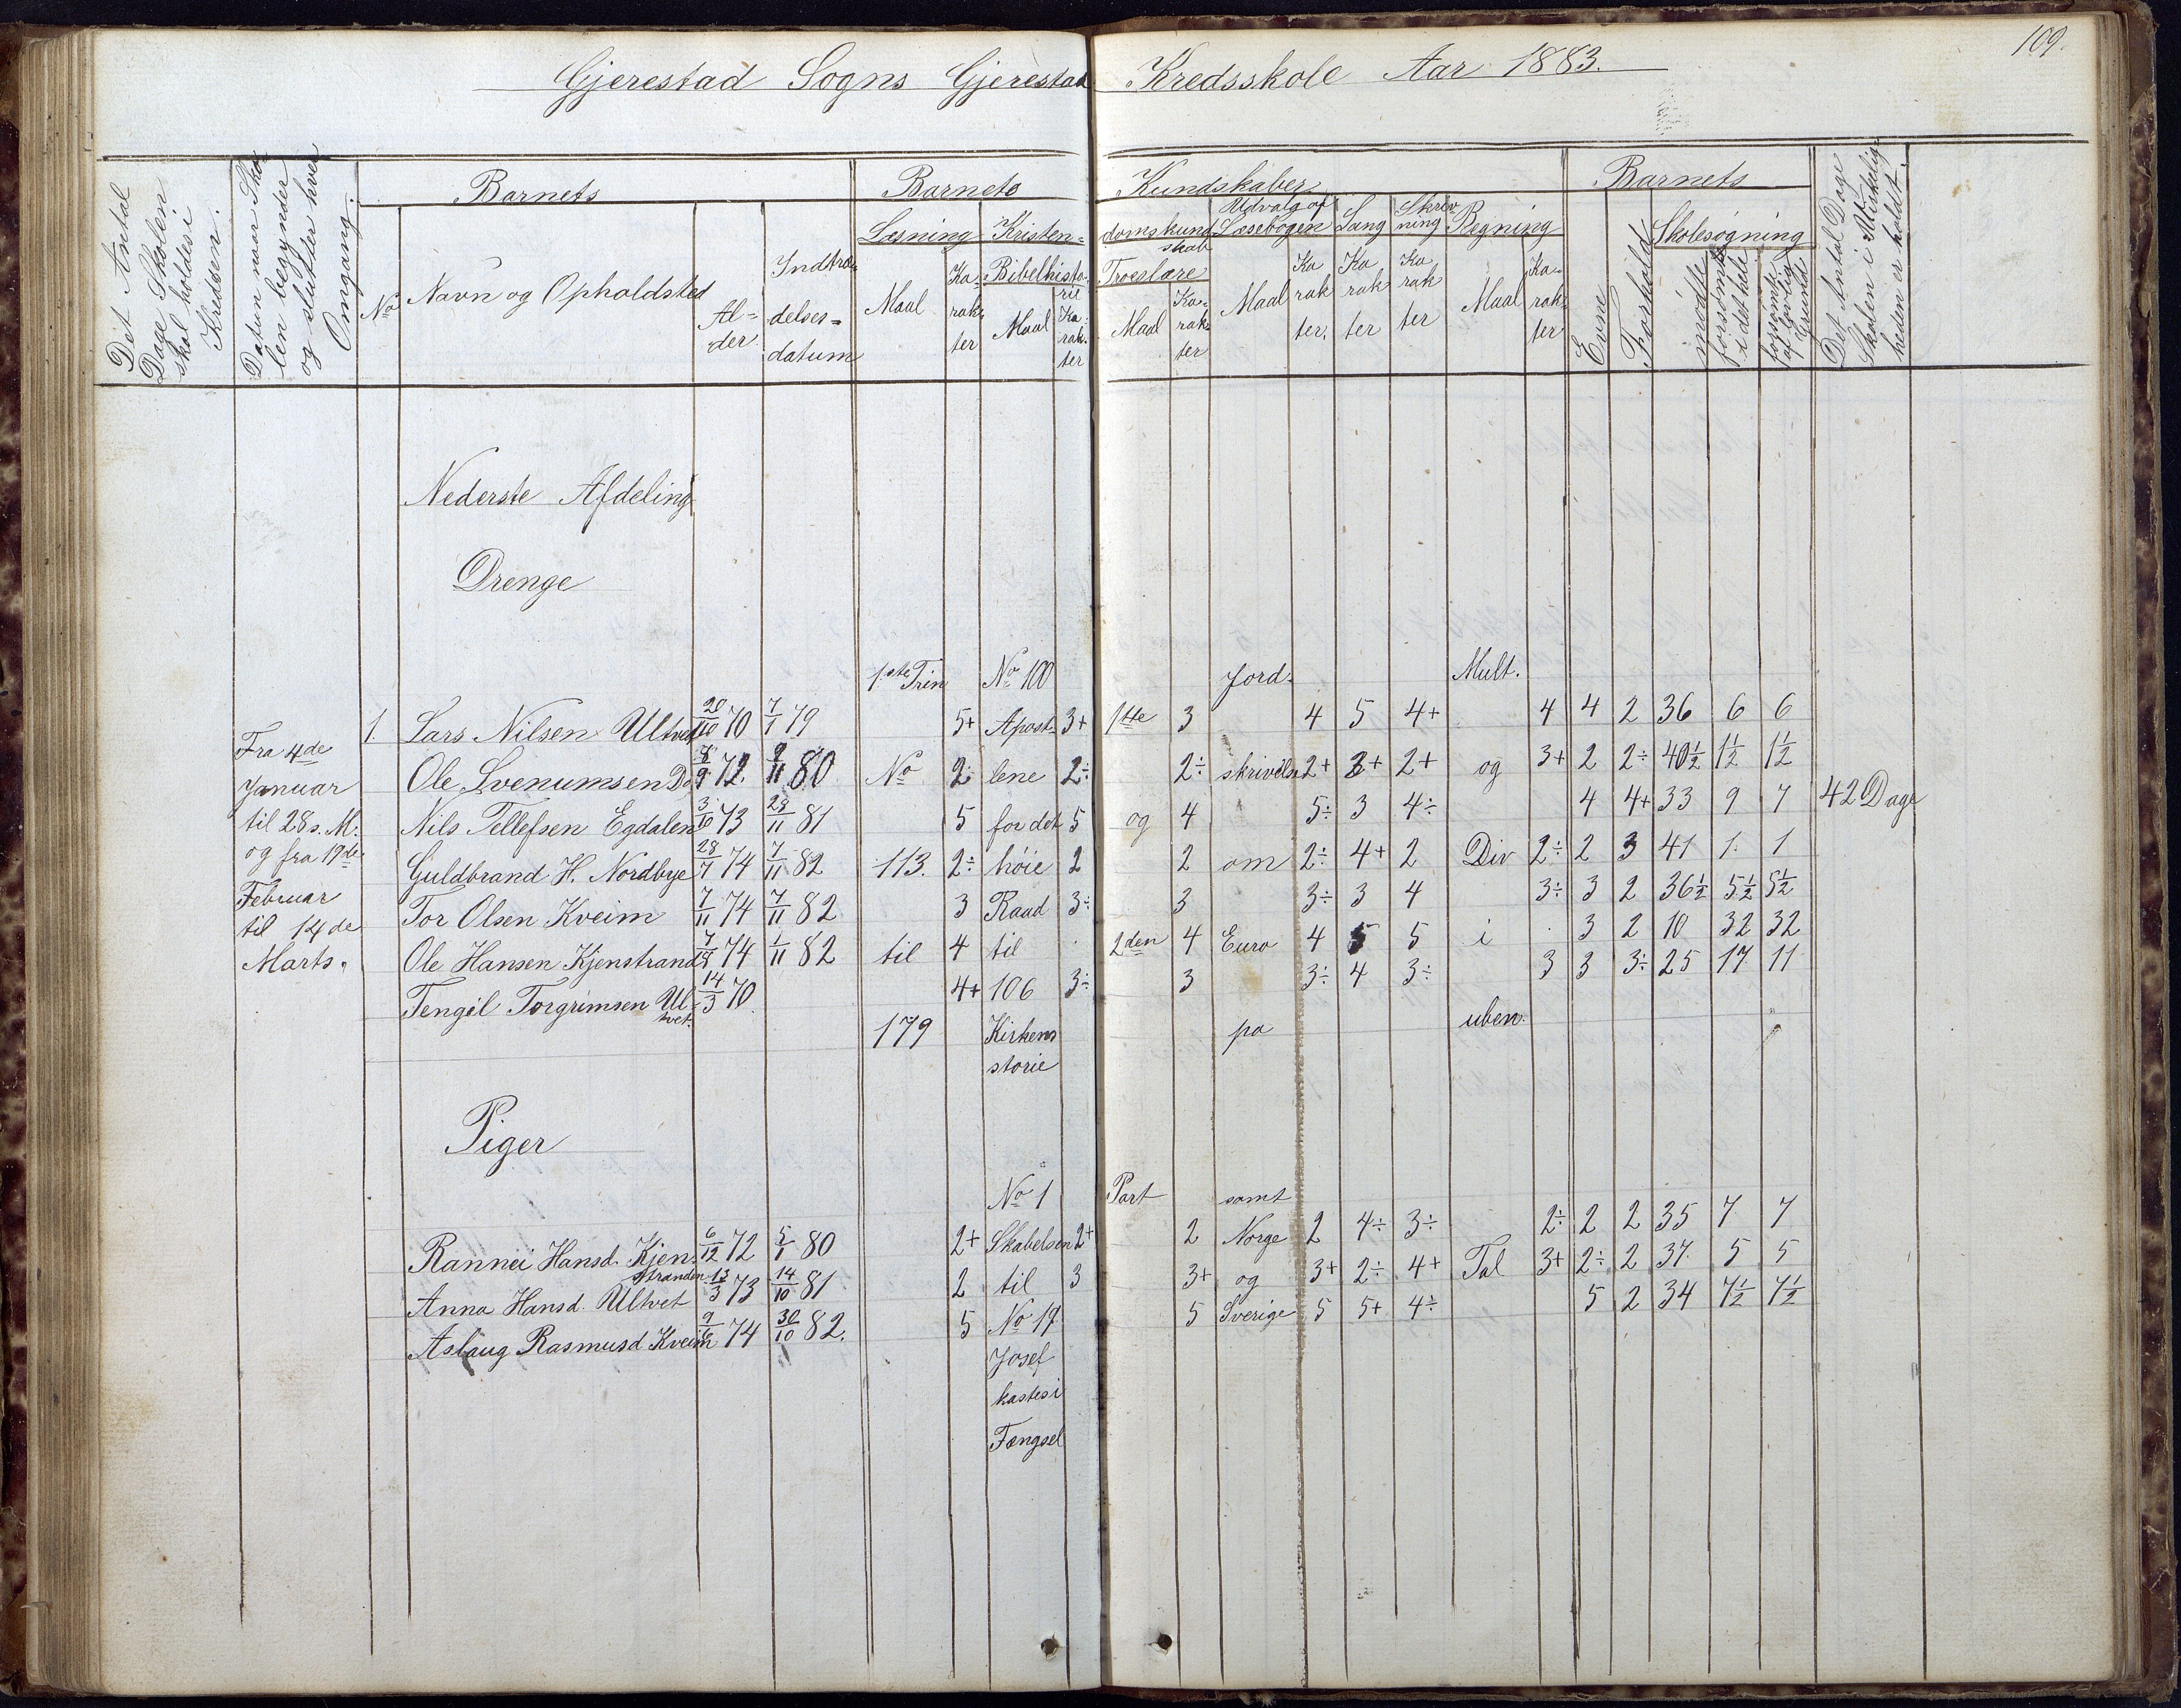 109.
Gjerestad Sogns Gjerestad Kredsskole Aar 1883.
Det Antal Dage Skolen skal holdes i Kredsen.
Datum naar Skolen begynder og slutter hver Omgang.
Barnets
No
Navn og Opholdsted
Al=der
Indtrædelses=datum
Barnets Kundskaber
Læsning
Maal
Karakter
Kristendomskundskab
Bibelhistorie
Maal
Karakter
Troeslære
Maal
Karakter
Udvalg af Læsebogen
Maal
Karakter.
Sang
Karakter
Skrivning
Karakter
Regning
Maal
Karakter
Barnets
Evne
Forhold
Skolesøgning
mødte
forsømte i det hele
forsømt af lovlig Grund
Det Antal Dage Skolen i Virkeligheden er holdt.
Nederste Afdeling
Drenge
1ste Trin No 100 Jord- Mult.
1. Lars Nilsen Ultvet 20/10 70 7/1 79 5+ Apost- 3+ 1ste 3 4 5 4+ 4 4 2 36 6 6
Fra 4de
Ole Svenumsen Do 8/9 72 9/11 80 No 2÷ lene 2÷ 2÷ skrivelse 2+ 3+ 2+ og 3+ 2 2÷ 40½ 1½ 1½
Januar
Nils Tellefsen Egdalen 3/10 73 28/11 81 5 for det 5 og 4 5÷ 3 4÷ 4 4+ 33 9 7 42 Dage
til 28 s. M.
og fra 19de
Guldbrand H. Nordbye 28/7 74 7/11 82 113. 2÷ høie 2 2 om 2÷ 4+ 2 Div 2÷ 2 3 41 1 1
Februar
Tor Olsen Kveim 7/11 74 7/11 82 3 Raad 3÷ 3 3÷ 3 4 3÷ 3 2 36½ 5½ 5½
til 14de
Ole Hansen Kjenstrand 7/8 74 1/11 82 til 4 til 2den 4 Euro 4 5 5 i 3 2 10 32 32
Marts.
Tengel Torgrimsen Ultvet. 14/3 70. 4+ 106 3÷ 3 3÷ 4 3÷ 3 3 3÷ 25 17 11
179 Kirkens pa uben.
storie
Piger
No 1 Part samt
Rannei Hansd. Kjenstranden 6/12 72 5/1 80 2+ Skabelsen 2+ 2 Norge 2 4÷ 3÷ 2÷ 2 2 35 7 7
Anna Hansd. Ultvet 13/3 73 14/10 81 2 til 3 3+ og 3+ 2÷ 4+ Tal 3+ 2÷ 2 37 5 5
Aslaug Rasmusd Kveim 9/6 74 30/10 82. 5 No 17 5 Sverige 5 5+ 4÷ 5 2 34 7½ 7½
Josef
kastes i
Fængsel